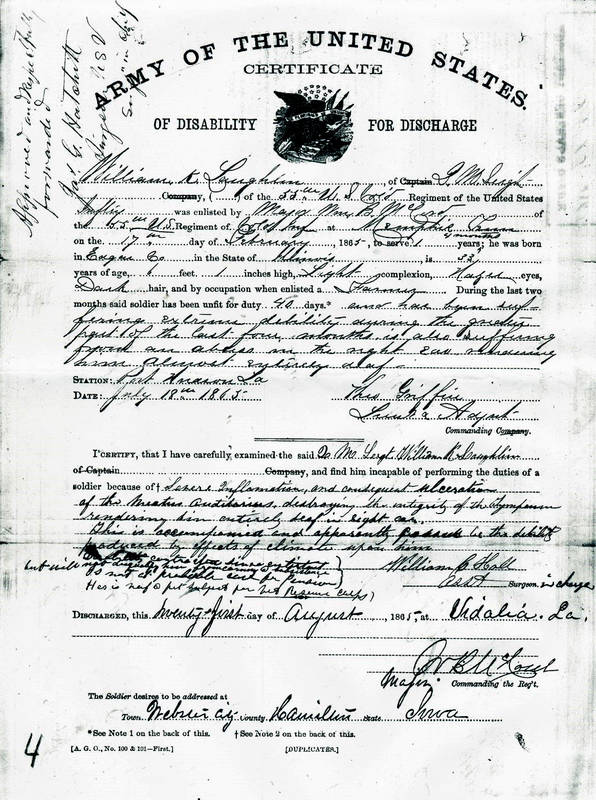 Approved and respectfully
forwarded
Jas. G. Hatchitt
Surgeon U S V
ARMY OF THE UNITED STATES.
CERTIFICATE
OF DISABILITY FOR DISCHARGE
William K. Laughlin of Captain Q. M. Sergt
Company, ( ) of the 55th U. S. Cold Regiment of the United States
Infty was enlisted by Majr Wm. B. of
the 55th U.S. Regiment of Cold Inf at Memphis Tenn
on the 17th day of February 1865, to serve 1 years; he was born
in Co in the State of Illinois, is 32
years of age, 6 feet 1 inches high, Light complexion, Hazel eyes,
Dark hair, and by occupation when enlisted a Farmer During the last two
months said soldier has been unfit for duty 40 days.* and has been suf-
fering extreme debility during the greater
part of the last four months is also suffering
from an abcess in the right ear rendering
him almost entirely deaf-
STATION: Post La
DATE: July 18th 1865 Theo Griffin
Lieut & Adjut
Commanding Company.
I CERTIFY, that I have carefully examined the said Q. M. Sergt William K Laughlin
of Captain Company, and find him incapable of performing the duties of a
soldier because of † Severe Inflamation, and consequent ulceration
of the Meatus Auditorius, destroying the integrity of the Tympanum
rendering him entirely deaf in right ear.
This is accompanied and apparently by the debility
produced by effects of climate upon him
William C Holt
Asst Surgeon. in charge
(He is not a fit subject for Vet Reserve Corps)
DISCHARGED, this Twenty-first day of August, 1865, at Vidalia. La.
Major Commanding the Reg't.
The Soldier desires to be addressed at
Town, Webster City County Hamilton State Iowa
*See Note 1 on the back of this. † See Note 2 on the back of this.
4
[A. G. O., No. 100 & 101—First.] [DUPLICATES.]